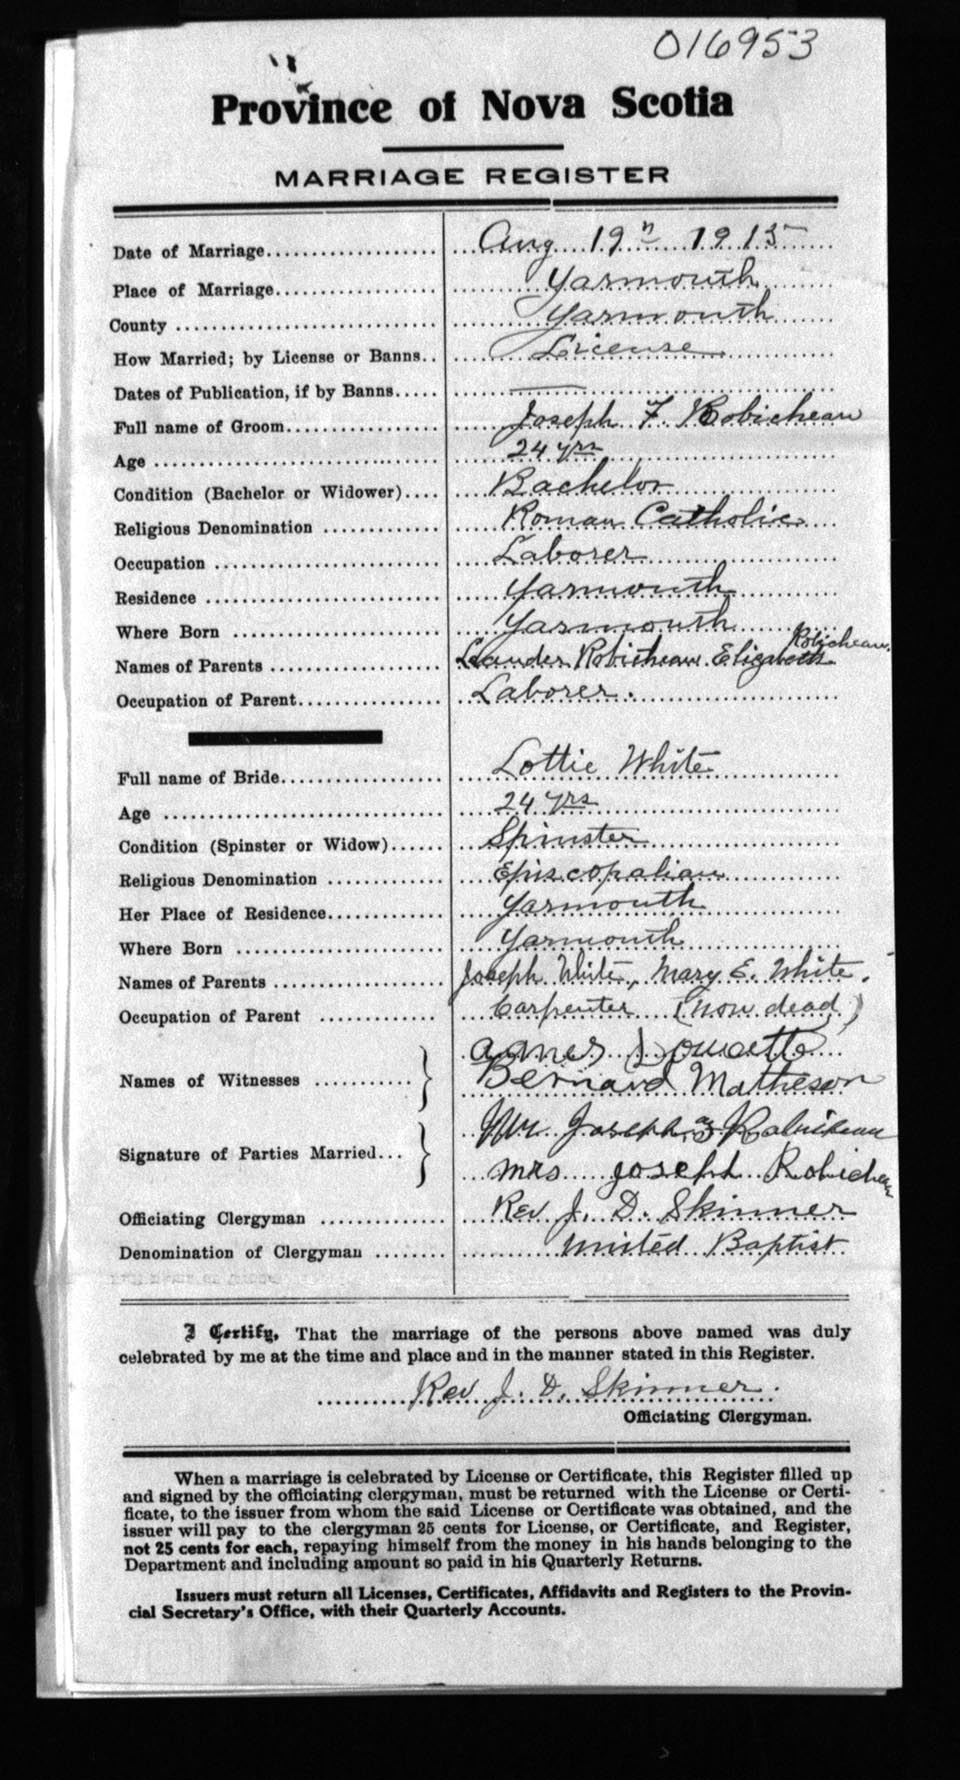 016953
Province of Nova Scotia
MARRIAGE REGISTER
Date of Marriage Aug 19th 1915
Place of Marriage Yarmouth
County Yarmouth
How Married; by License or Banns License
Dates of Publication, if by Banns —
Full name of Groom Joseph F. Robicheau
Age 24 yrs
Condition (Bachelor or Widower) Bachelor
Religious Denomination Roman Catholic
Occupation Laborer
Residence Yarmouth
Where Born Yarmouth
Names of Parents Leander Robicheau Elizabeth Robicheau
Occupation of Parent Laborer.
Full name of Bride Lottie White
Age 24 yrs
Condition (Spinster or Widow) Spinster
Religious Denomination Episcopalian
Her Place of Residence Yarmouth
Where Born Yarmouth
Names of Parents Joseph White, Mary E. White.
Occupation of Parent Carpenter (now dead)
Agnes Doucette
Names of Witnesses Bernard Matheson
Mr Joseph
Signature of Parties Married mrs joseph Robicheau
Officiating Clergyman Rev J. D. Skinner
Denomination of Clergyman United Baptist
I Certify, That the marriage of the persons above named was duly
celebrated by me at the time and place and in the manner stated in this Register.
Rev J. D. Skinner.
Officiating Clergyman.
When a marriage is celebrated by License or Certificate, this Register filled up
and signed by the officiating clergyman, must be returned with the License or Certi-
ficate, to the issuer from whom the said License or Certificate was obtained, and the
issuer will pay to the clergyman 25 cents for License, or Certificate, and Register,
not 25 cents for each, repaying himself from the money in his hands belonging to the
Department and including amount so paid in his Quarterly Returns.
Issuers must return all Licenses, Certificates, Affidavits and Registers to the Provin-
cial Secretary's Office, with their Quarterly Accounts.